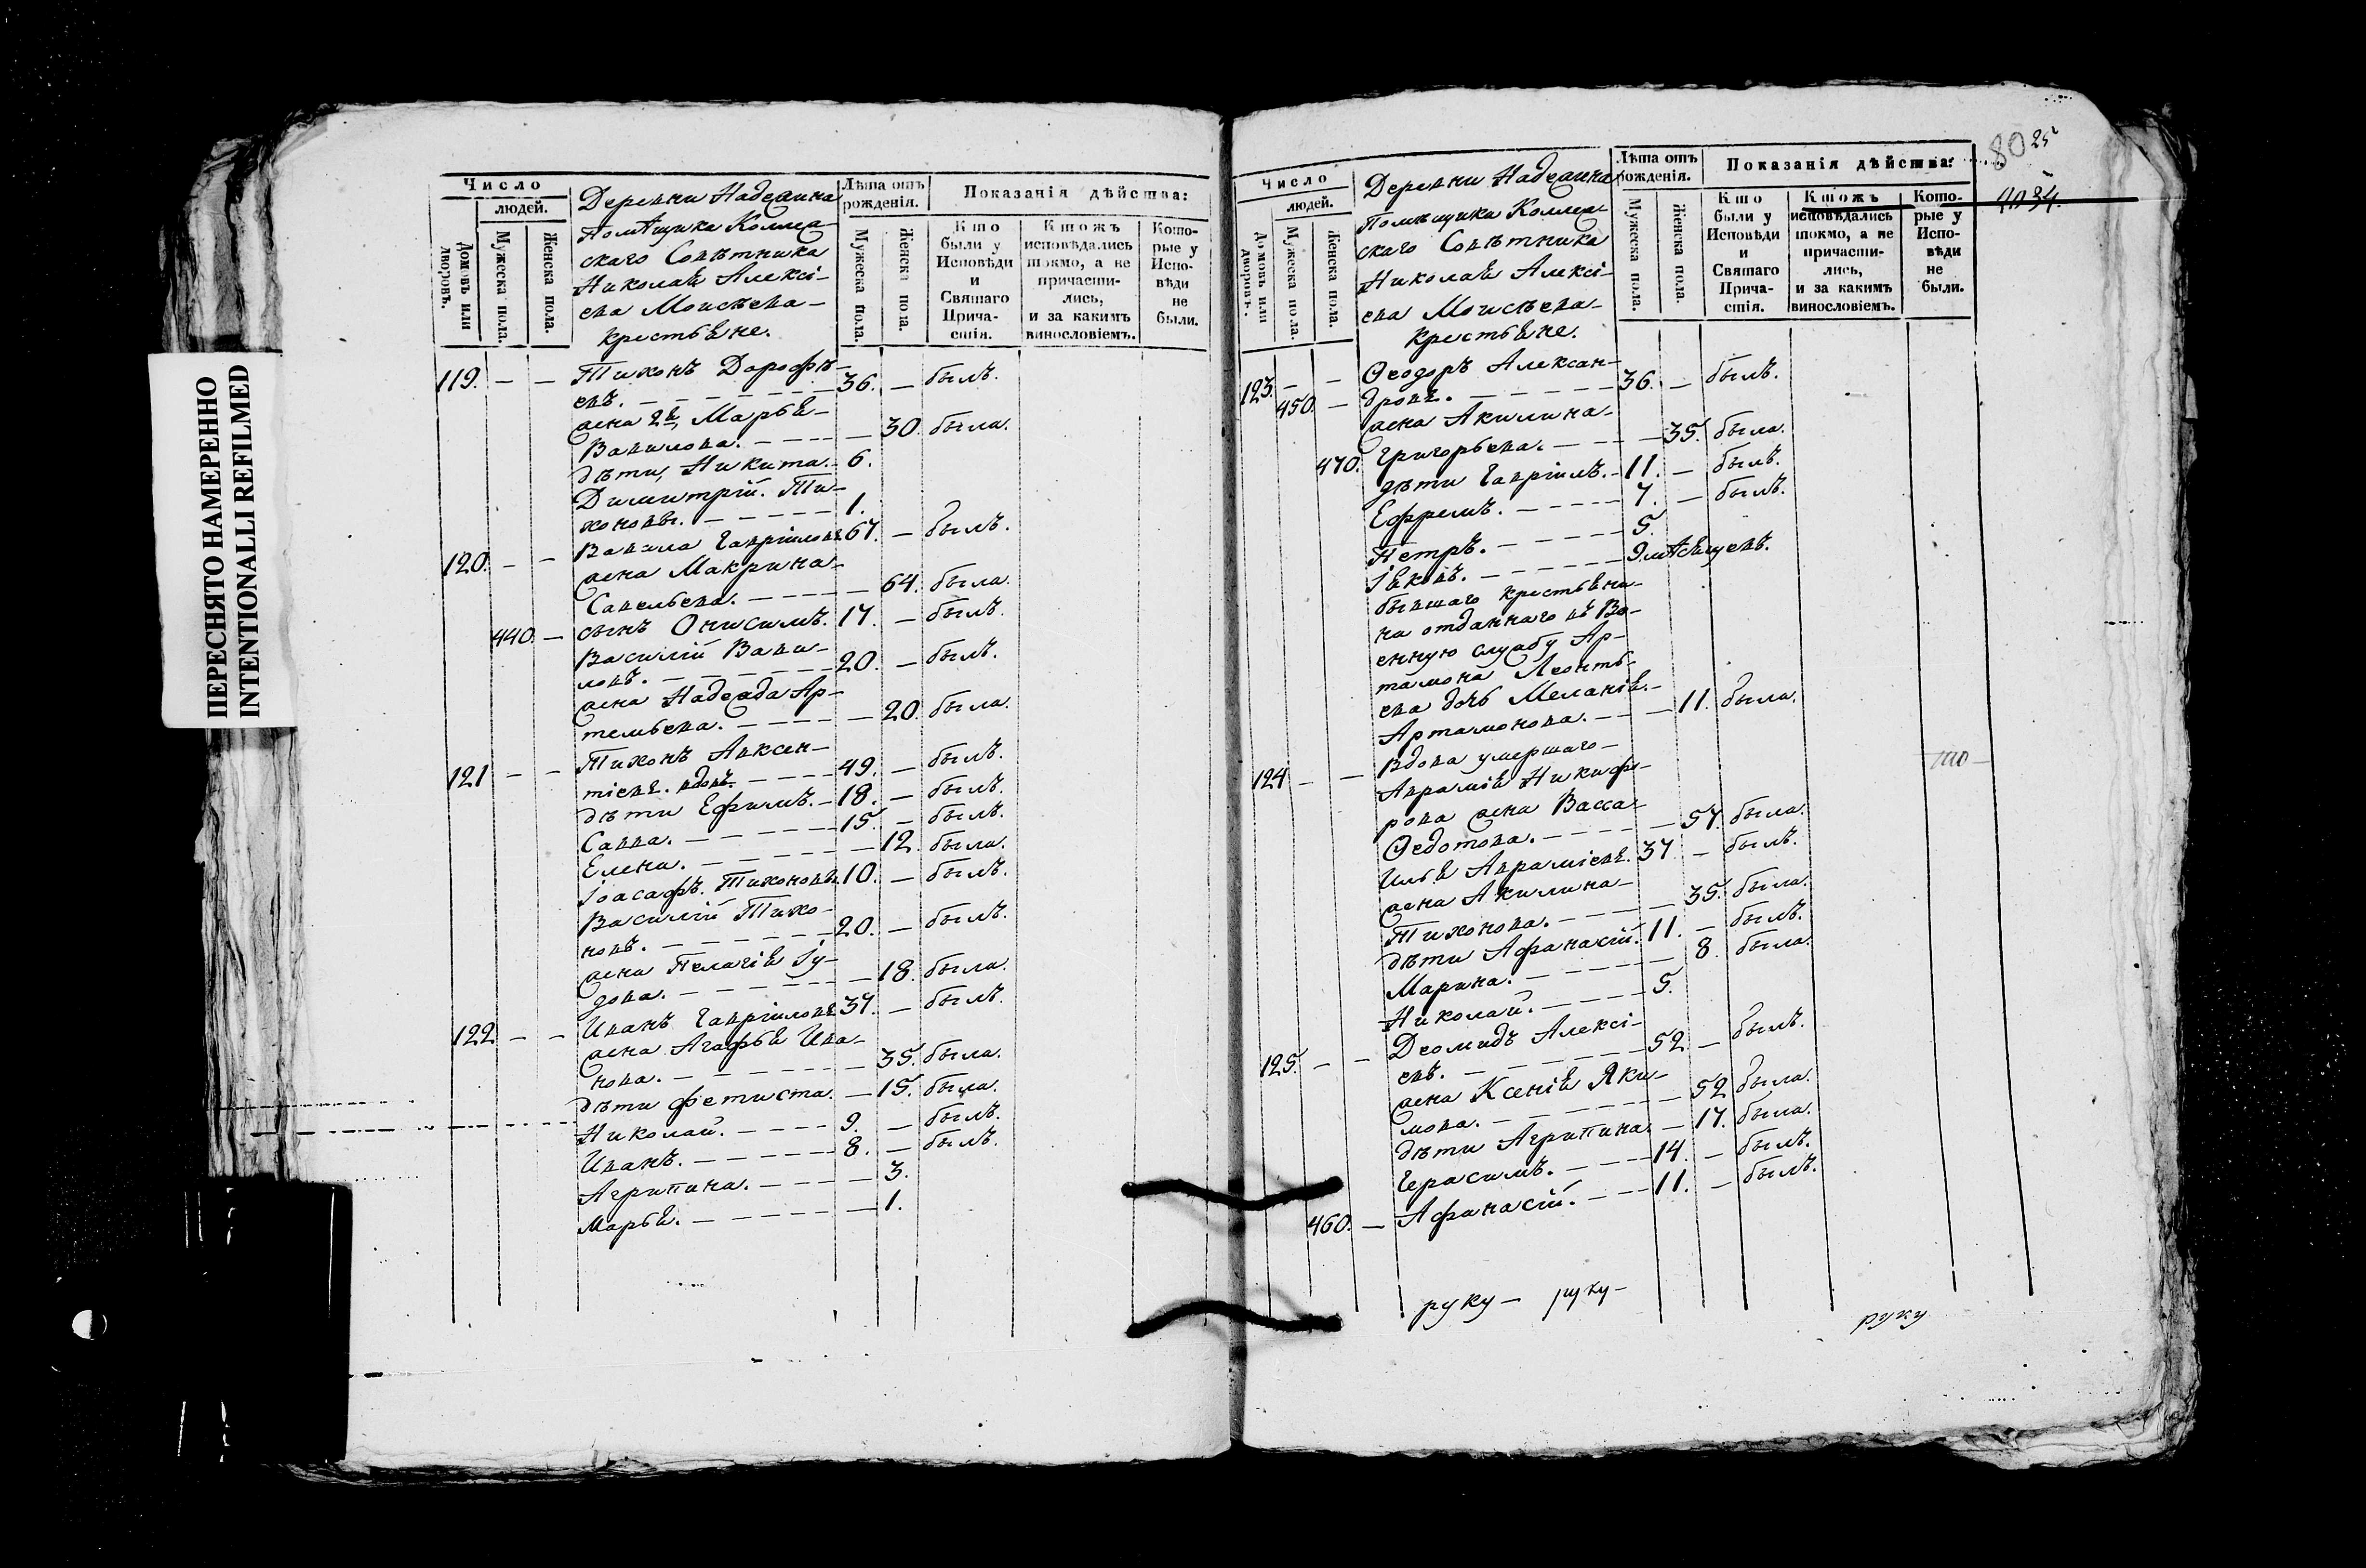 ПЕРЕСНЯТО НАМЕРЕННО
INTENTIONALLI REFILMED
Число
людей.
Домовъ или дворовъ.
Мужеска пола.
Женска пола.
Деревни Надежина
Помѣщика Коллеж-
скаго Совѣтника
Николая Алексі-
ева Моисѣева
крестьяне.
Лѣта отъ рожденія.
Мужеска пола.
Женска пола.
Показанія дѣйства:
Кто были у Исповѣди и Святаго Прича-стія.
Ктожъ исповѣдались токмо, а не причасти-лись, и за какимъ винословіемъ.
Кото-рые у Испо-вѣди не были.
119. — — Тихонъ Дорофѣ-
евъ. 36. — былъ.
жена 2я, Марья
Вавилова. — 30. была.
дѣти, Никита. 6.
Димитрій. Ти-
хоновы. 1.
120. — — Вавила Гавріиловъ 67. — былъ.
жена Макрина
Савельева. — 64. была.
440. — сынъ Онисимъ. 17. — былъ.
Василій Вави-
ловъ. 20. — былъ.
жена Надежда Ар-
тельева. — 20. была.
121 — — Тихонъ Авксен-
тіевъ. вдовъ. 49. — былъ.
дѣти Ефимъ. 18. — былъ.
Савва. 15. — былъ.
Елена. — 12. была.
Іоасафъ. Тихоновы. 10. — былъ.
Василій Тихо-
новъ. 20. — былъ.
жена Пелагія Іу-
дова. — 18. была.
122 — — Иванъ Гавріиловъ 37. — былъ.
жена Агафья Ива-
нова. — 35. была.
дѣти Фетиста. — 15. была.
Николай. 9. — былъ.
Иванъ. 8. — былъ.
Агрипина. — 3.
Марья. — 1.
80 25
4034.
Число
людей.
Домовъ или дворовъ.
Мужеска пола.
Женска пола.
Деревни Надежина
Помѣщика Коллеж-
скаго Совѣтника
Николая Алексі-
ева Моисѣева
крестьяне.
Лѣта отъ рожденія.
Мужеска пола.
Женска пола.
Показанія дѣйства:
Кто были у Исповѣди и Святаго Прича-стія.
Ктожъ исповѣдались токмо, а не причасти-лись, и за какимъ винословіемъ.
Кото-рые у Испо-вѣди не были.
123. — — Ѳеодоръ Алексан-
450. — дровъ. 36. — былъ.
жена Акилина
470. Григорьева. — 35. была.
дѣти Гавріилъ. 11. — былъ.
Ефремъ. 7. — былъ.
Петръ. 5.
Іяковъ. 9 мѣсяцевъ.
бывшаго крестьяни-
на отданнаго въ Во-
енную службу Ар-
тамона Леонть-
ева дочь Меланія
Артамонова. — 11. была.
124 — — Вдова умершаго
Авраамія Никифо-
рова жена Васса
Ѳедотова. — 57. была.
Илья Авраміевъ. 37. — былъ.
жена Акилина
Тихонова. — 35. была.
дѣти Афанасій. 11. — былъ.
Марина. — 8. была.
Николай. 5.
125. — — Деомидъ Алексі-
евъ. 52. — былъ.
жена Ксенія Яки-
мова. — 52 была.
дѣти Агрипина. — 17. была.
Герасимъ. 14. — былъ.
460. — Афанасій. 11. — былъ.
руку — руку —
руку